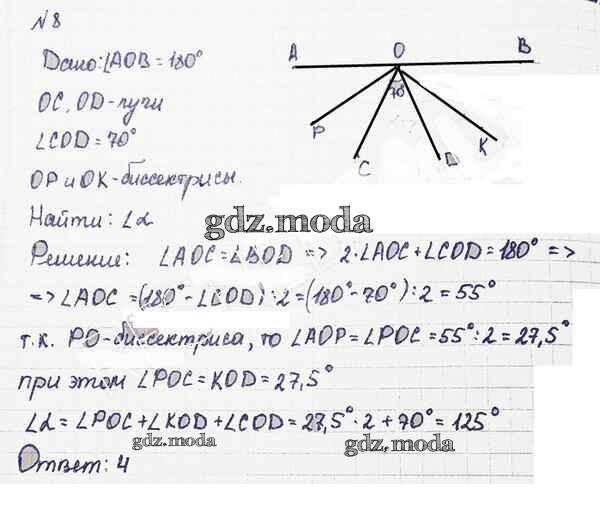 №8
Дано: ∠AOB = 180°
OC, OD - лучи
∠COD = 70°
OP и OK - биссектрисы.
Найти: ∠α
A O B
70°
P C D K
gdz.moda
Решение: ∠AOC = ∠BOD => 2·∠AOC + ∠COD = 180° =>
=> ∠AOC = (180° - ∠COD) : 2 = (180° - 70°) : 2 = 55°
т.к. PO - биссектриса, то ∠AOP = ∠POC = 55° : 2 = 27,5°
при этом ∠POC = KOD = 27,5°
∠α = ∠POC + ∠KOD + ∠COD = 27,5° · 2 + 70° = 125°
gdz.moda gdz.moda
Ответ: 4